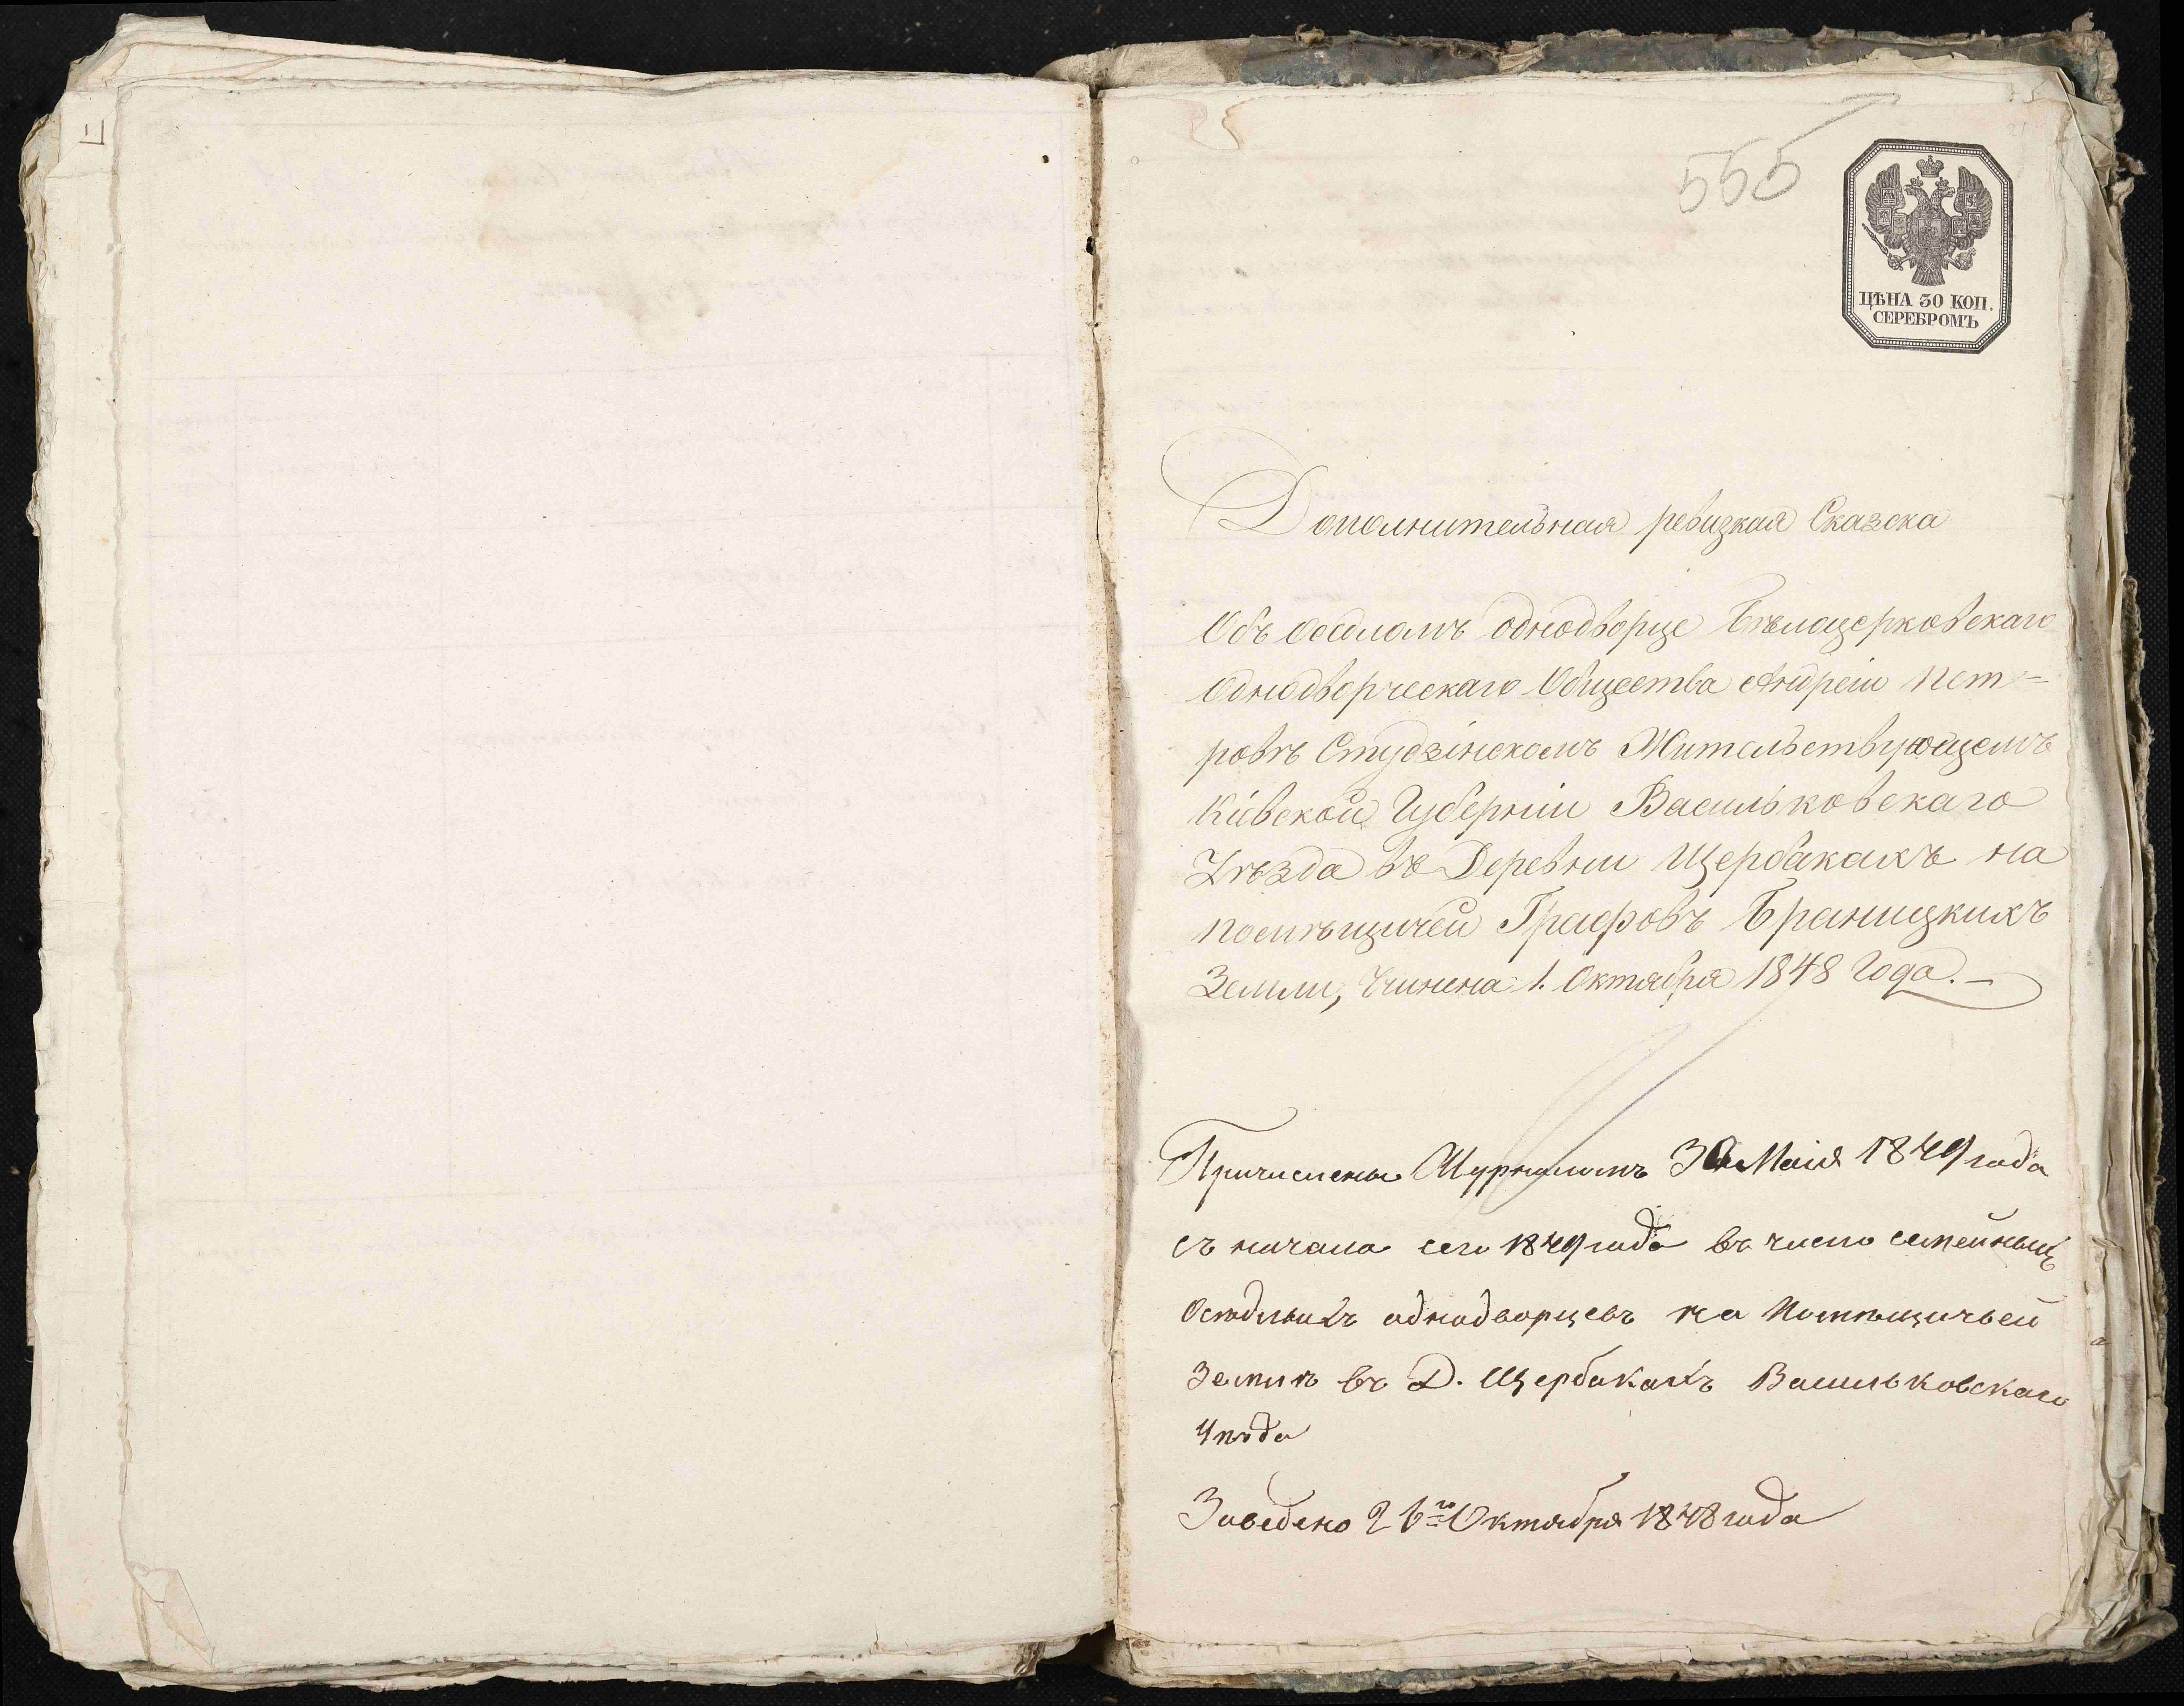 555
ЦѢНА 30 КОП.
СЕРЕБРОМЪ
Дополнительная ревизкая Сказска
Объ осѣдломъ однодворце Бѣлоцерковскаго
Однодворческаго Общества Андреи Пет-
ровѣ Студзінскомъ Жительствующемъ
Кіевской Губерніи Васильковскаго
Уѣзда въ Деревни Щербакахъ на
помѣщичей Графовъ Браницкихъ
Земли, Чинена 1. Октября 1848 Года.-
Причислены Журналомъ 30 Маія 1849 года
съ начала сего 1849 года въ число семейныхъ
Осѣдлыхъ однодворцевъ на Помѣщичьей
Землѣ въ Д. Щербакахъ Васильковскаго
Уѣзда
Заведено 26го Октября 1848 года